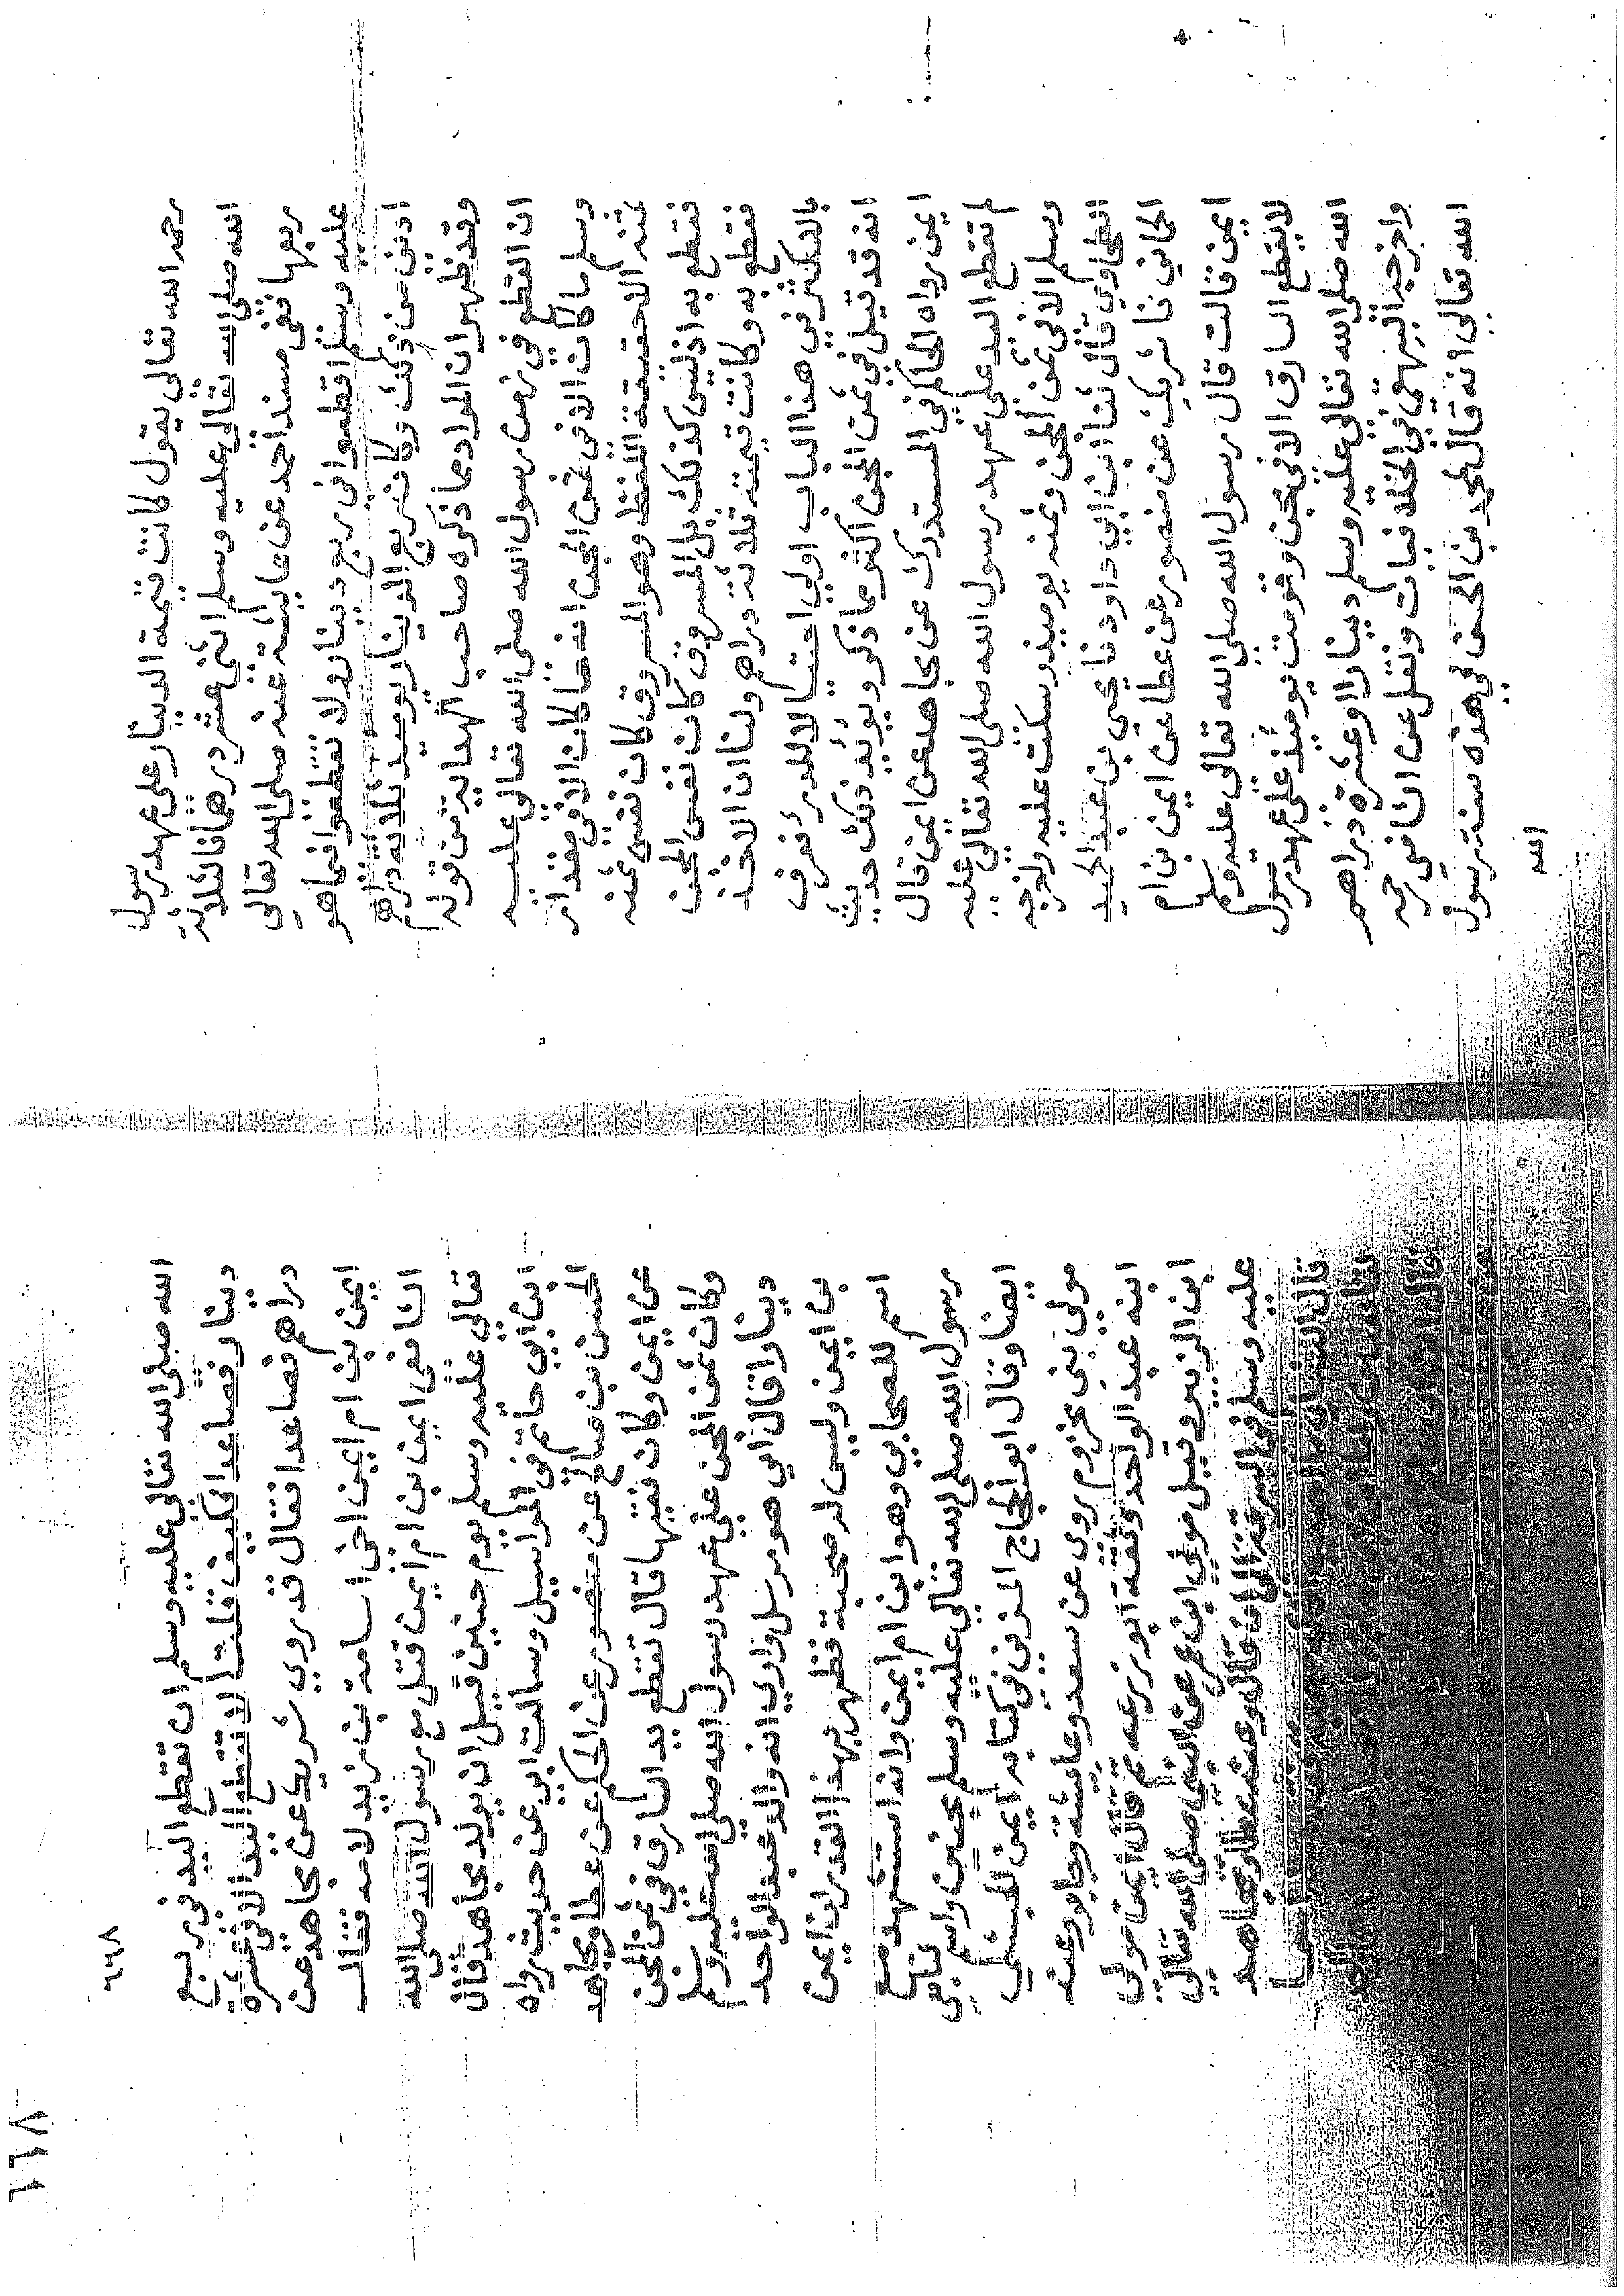 رحمه الله تعالى يقول كانت قيمة الدينار على عهد رسول
الله صلى الله تعالى عليه وسلم اثنى عشر درهما فالثلاثة
ربعها ففى مسند احمد عن عايشة عنه صلى الله تعالى
عليه وسلم اقطعوا فى ربع دينار ولا تقطعوا فيما هو
ادنى من ذلك وكان ربع الدينار يوميد ثلاثة دراهم
وقد ظهر ان المراد مما ذكره صاحب الهداية من قوله
ان القطع في زمن رسول الله صلى الله تعالى عليه
وسلم ما كان الا فى ثمن المجن انه ما كان الا في مقدار
ثمنه الا حقيقة اللفظ وهو المسروق كان نفس ثمنه
فقطع به اذ ليس كذلك بل المسروق كان نفس المجن
فقطع به وكانت قيمته ثلاثة دراهم ولنا ان الاخذ
بالاكثر في هذا الباب اولى احتيالا للدرء نعرف
انه قد قيل في ثمن المجن اكثر مما ذكر ويؤيد ذلك حديث
ايمن رواه الحاكم في المستدرك عن مجاهد عن ايمن قال
لم تقطع اليد على عهد رسول الله صلى الله تعالى عليه
وسلم الا فى ثمن المجن وثمنه يوميذ وسكت عليه واخرجه
الطحاوي قال ثنا ابن ابي داود نا يحيي بن عبد الحميد
الحماني نا شريك عن منصور عن عطا عن ايمن بن ام
ايمن قالت قال رسول الله صلى الله تعالى عليه وسلم
لا يقطع السارق الا في مجن وقومت يومئذ على عهد رسول
الله صلى الله تعالى عليه وسلم دينارا او عشرة دراهم
واخرجه البيهقي في الخلافيات ونقل عن الشافعي رحمه
الله تعالى انه قال لمحمد بن الحسن في هذه سنة رسول
الله
٦٦٨
٦٦٨
الله صلى الله تعالى عليه وسلم ان تقطع اليد في ربع
دينار فصاعدا فكيف قلت لا تقطع اليد الا في عشرة
دراهم فصاعدا فقال قد روي شريك عن مجاهد عن
ايمن بن ام ايمن اخى اسامة بن زيد لامه فقال
الشافعى ايمن بن ام ايمن قتل مع رسول الله صلى الله
تعالى عليه وسلم يوم حنين قبل ان يولد مجاهد قال
ابن ابي حاتم في المراسيل وسالت ابي عن حديث رواه
الحسن بن صالح عن منصور عن الحكم عن عطا ومجاهد
عن ايمن وكان فقيها قال تقطع يد السارق في ثمن المجن
وكان ثمن المجن على عهد رسول الله صلى الله عليه وسلم
دينارا قال ابي هو مرسل واري انه والد عبد الواحد
بن ايمن وليس له صحبة فظهر بهذا القدر ان ايمن
اسم للصحابي وهو ابن ام ايمن وانه استشهد مع
رسول الله صلى الله تعالى عليه وسلم بحنين واسم لتابعي
ايضا وقال ابو الحجاج المزني في كتابه ايمن الحبشي
مولى بني مخزوم روى عن سعد وعايشة وجابر وعنه
ابنه عبد الواحد وثقه ابو زرعه ثم قال ايمن مولى
ابن الزبير وقيل مولى ابن عمر عن النبي صلى الله تعالى
عليه وسلم في السرقة الى ان قال وعنه عطا ومجاهد
قال النسائي